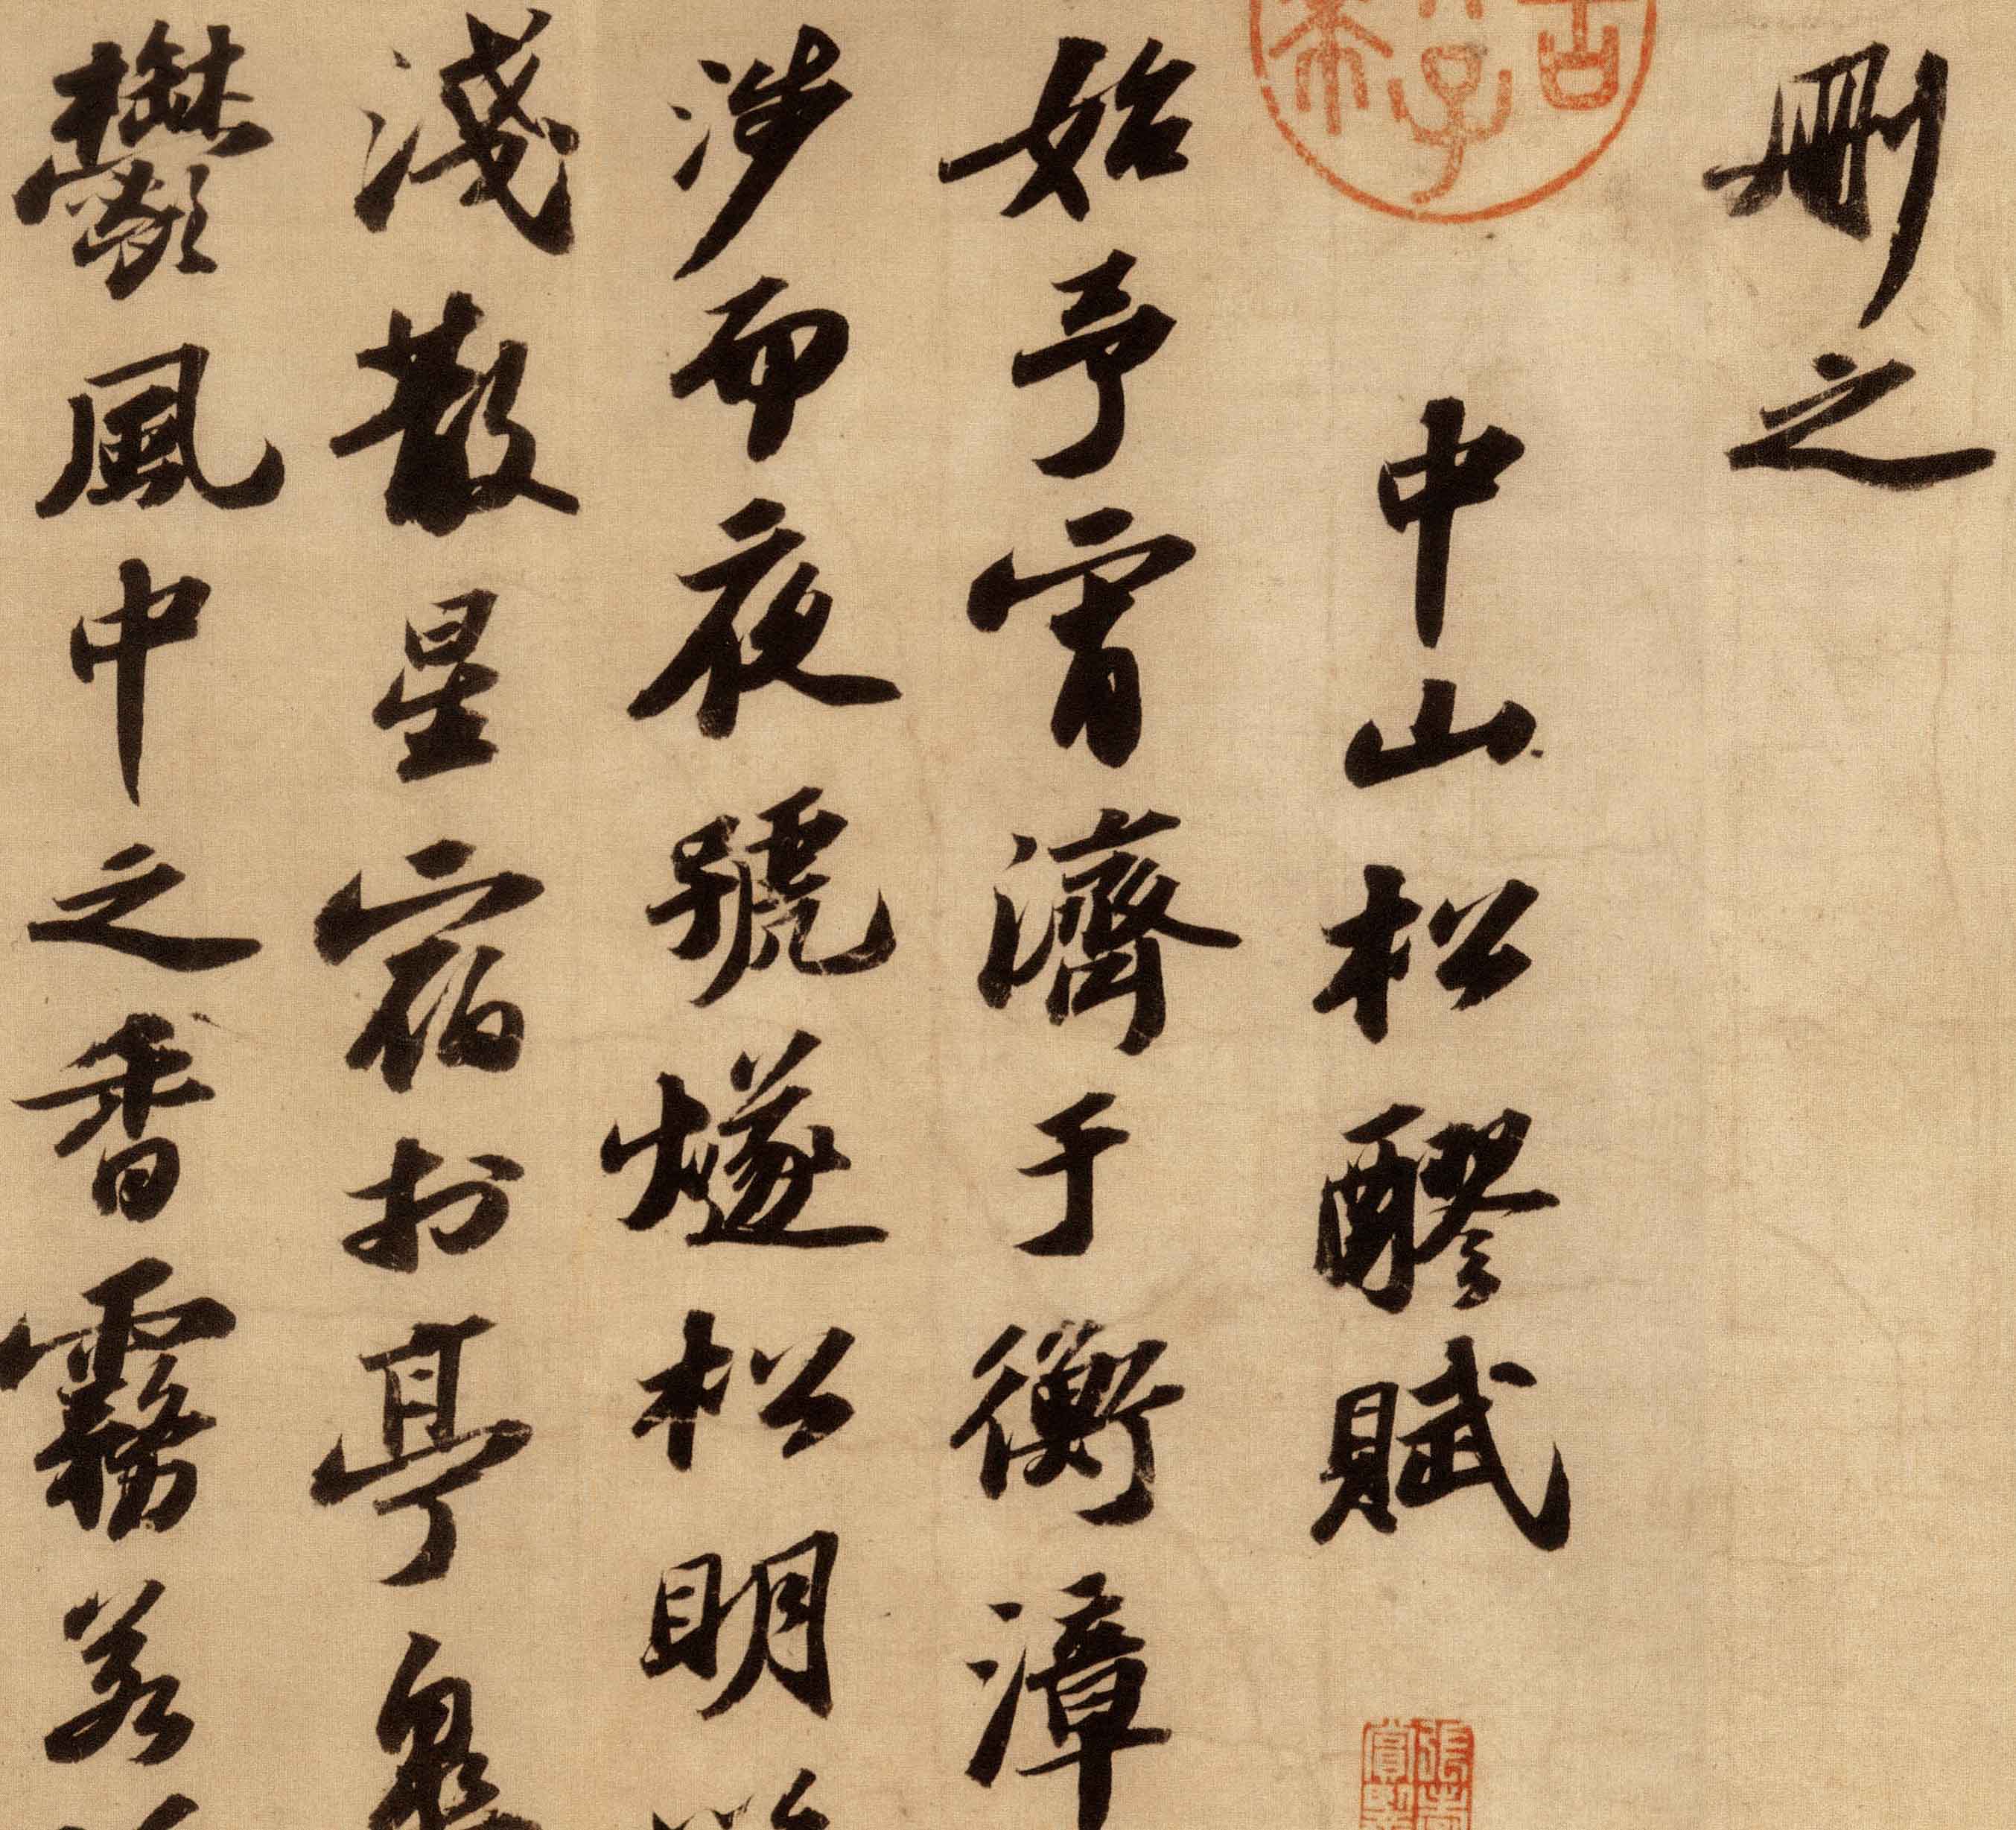 刪之
中山松醪賦
始予宵濟于衡漳
涉而夜號燧松明
淺散星宿於亭皋
鬱風中之香霧若